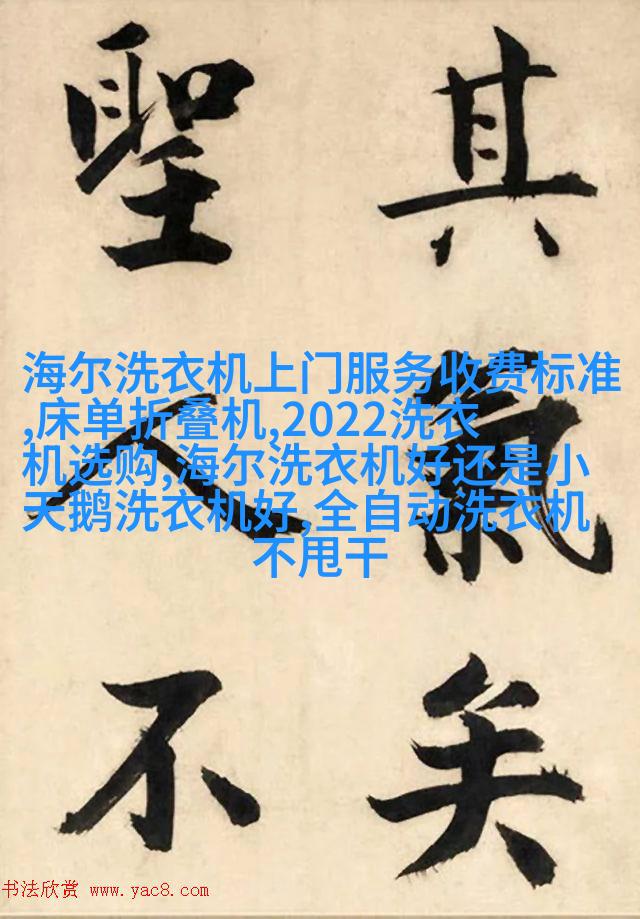 其氣矣
聖人不
海尔洗衣机上门服务收费标准
,床单折叠机,2022洗衣
机选购,海尔洗衣机好还是小
天鹅洗衣机好,全自动洗衣机
不甩干
书法欣赏 www.yac8.com